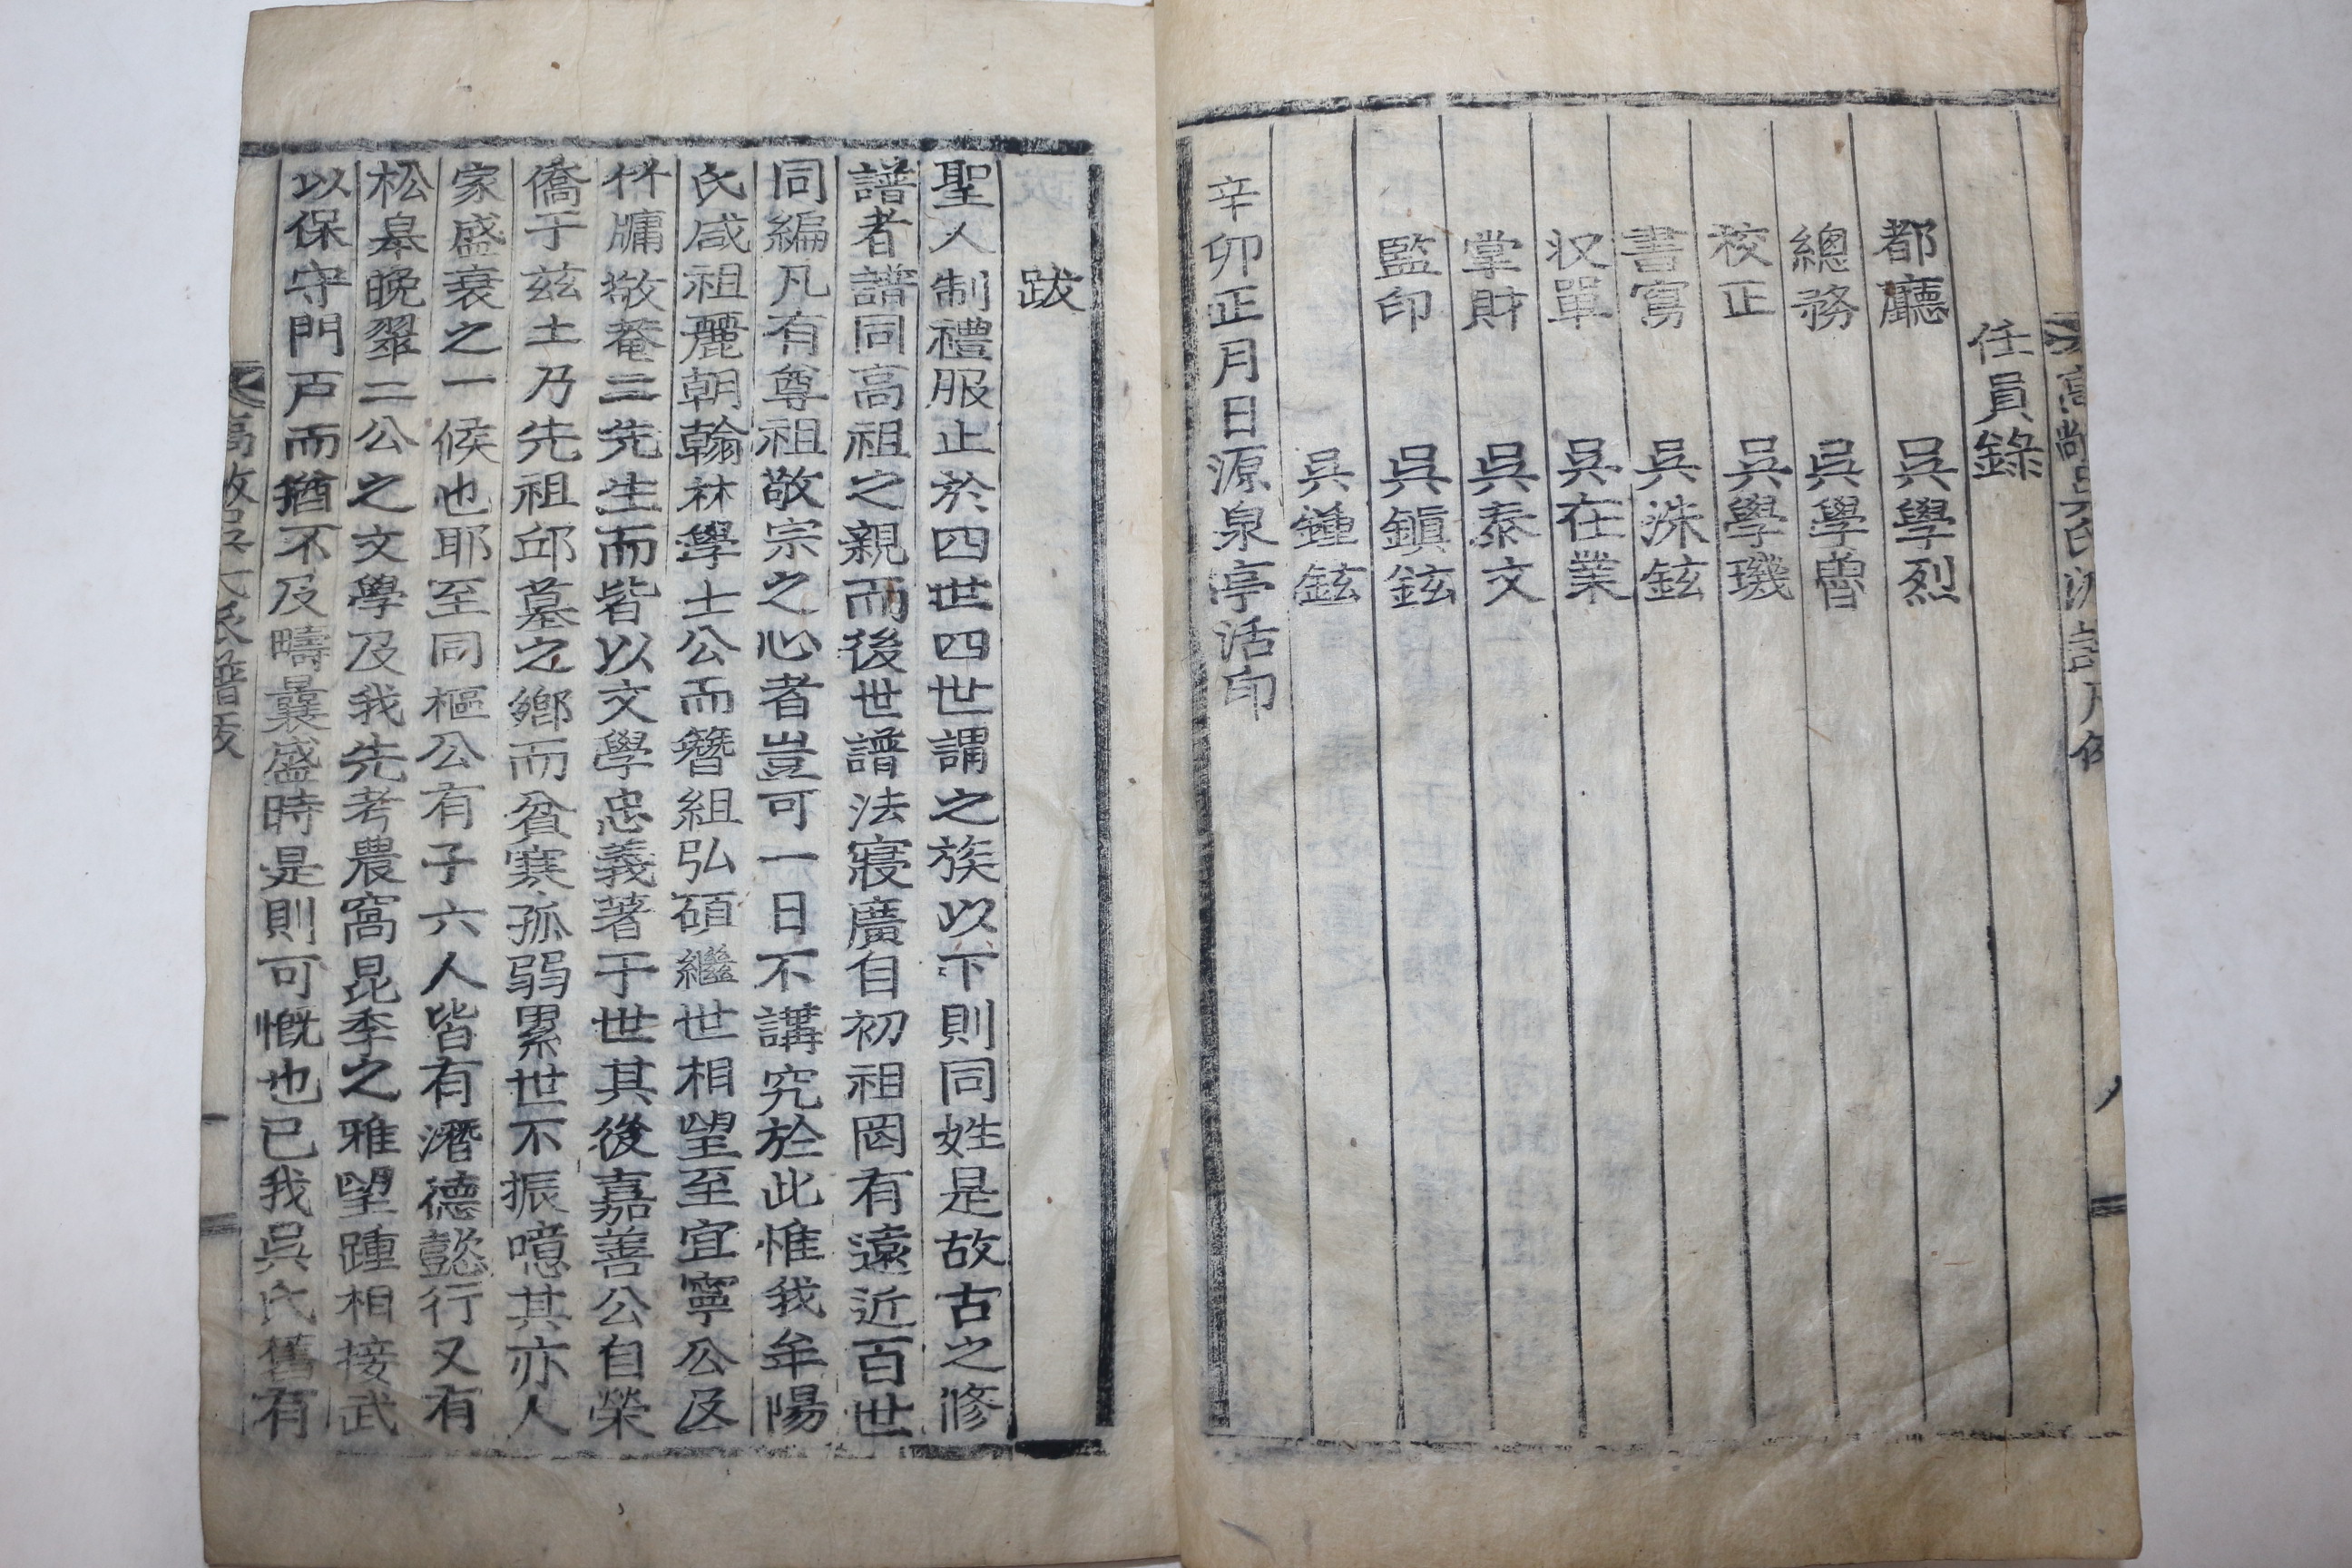 高敞吳氏派譜凡例
任員錄
都廳 吳學烈
總務 吳學魯
校正 吳學璣
書寫 吳洙鉉
収單 吳在業
掌財 吳泰文
監印 吳鎭鉉
吳鍾鉉
辛卯正月日源泉亭活印
跋
聖人制禮服止於四世四世謂之族以下則同姓是故古之修
譜者譜同高祖之親而後世譜法寢廣自初祖罔有遠近百世
同編凡有尊祖敬宗之心者豈可一日不講究於此惟我牟陽
氏咸祖麗朝翰林學士公而簪組弘碩繼世相望至宜寧公及
休牗墩菴三先生而皆以文學忠義著于世其後嘉善公自榮
僑于茲土乃先祖邱墓之鄕而貧寒孤弱累世不振噫其亦人
家盛衰之一候也耶至同樞公有子六人皆有潛德懿行又有
松皐晩翠二公之文學及我先考農窩昆季之雅望踵相接武
以保守門戶而猶不及疇曩盛時是則可慨也已我吳氏舊有
高敞吳氏派譜跋 一